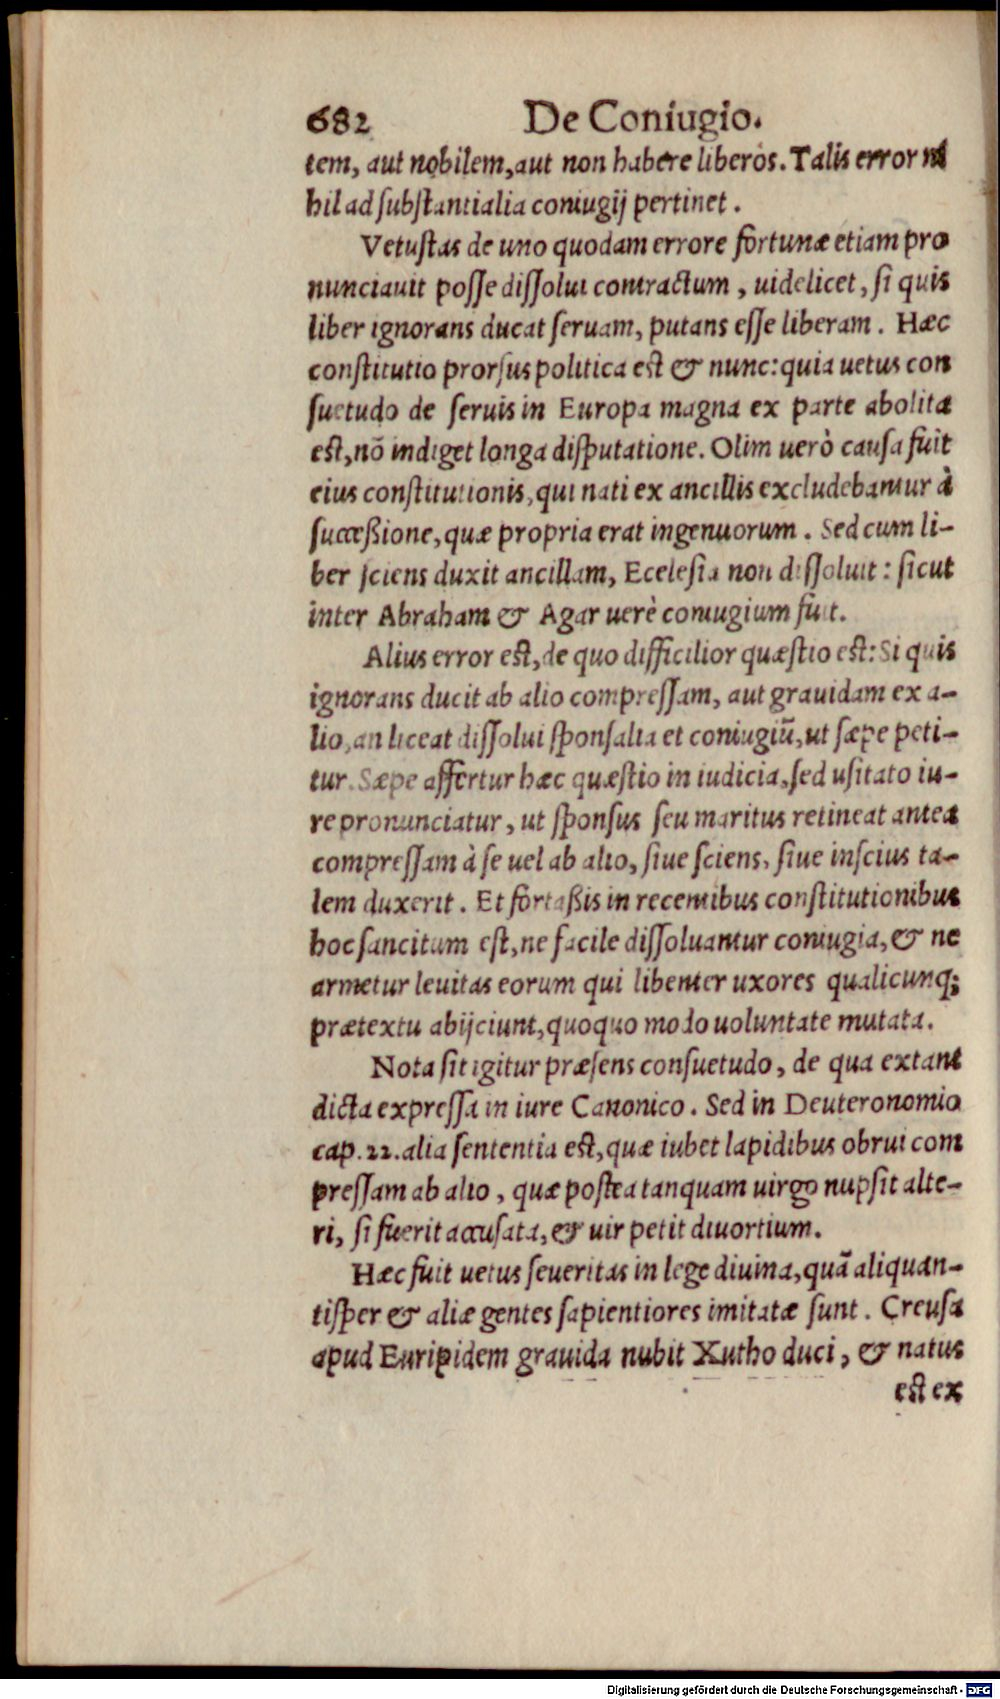 682 De Coniugio.
tem, aut nobilem, aut non habere liberos. Talis error ni
hil ad substantialia coniugij pertinet.
Vetustas de uno quodam errore fortunæ etiam pro
nunciauit posse dissolui contractum, uidelicet, si quis
liber ignorans ducat seruam, putans esse liberam. Hæc
constitutio prorsus politica est & nunc: quia uetus con
suetudo de seruis in Europa magna ex parte abolita
est, nō indiget longa disputatione. Olim uerò causa fuit
eius constitutionis, qui nati ex ancillis excludebantur à
successione, quæ propria erat ingenuorum. Sed cum li-
ber sciens duxit ancillam, Ecclesia non dissoluit: sicut
inter Abraham & Agar uerè coniugium fuit.
Alius error est, de quo difficilior quæstio est: Si quis
ignorans ducit ab alio compressam, aut grauidam ex a-
lio, an liceat dissolui sponsalia et coniugiū, ut sæpe peti-
tur. Sæpe affertur hæc quæstio in iudicia, sed usitato iu-
re pronunciatur, ut sponsus seu maritus retineat antea
compressam à se uel ab alio, siue sciens, siue inscius ta-
lem duxerit. Et fortaßis in recentibus constitutionibus
hoc sancitum est, ne facile dissoluantur coniugia, & ne
armetur leuitas eorum qui libenter uxores qualicunq;
prætextu abijciunt, quoquo modo uoluntate mutata.
Nota sit igitur præsens consuetudo, de qua extant
dicta expressa in iure Canonico. Sed in Deuteronomio
cap. 22. alia sententia est, quæ iubet lapidibus obrui com
pressam ab alio, quæ postea tanquam uirgo nupsit alte-
ri, si fuerit accusata, & uir petit diuortium.
Hæc fuit uetus seueritas in lege diuina, quā aliquan-
tisper & aliæ gentes sapientiores imitatæ sunt. Creusa
apud Euripidem grauida nubit Xutho duci, & natus
est ex
Digitalisierung gefördert durch die Deutsche Forschungsgemeinschaft - DFG